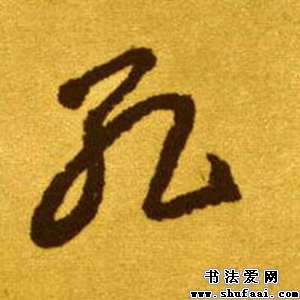 孔
书法爱网
www.shufaai.com